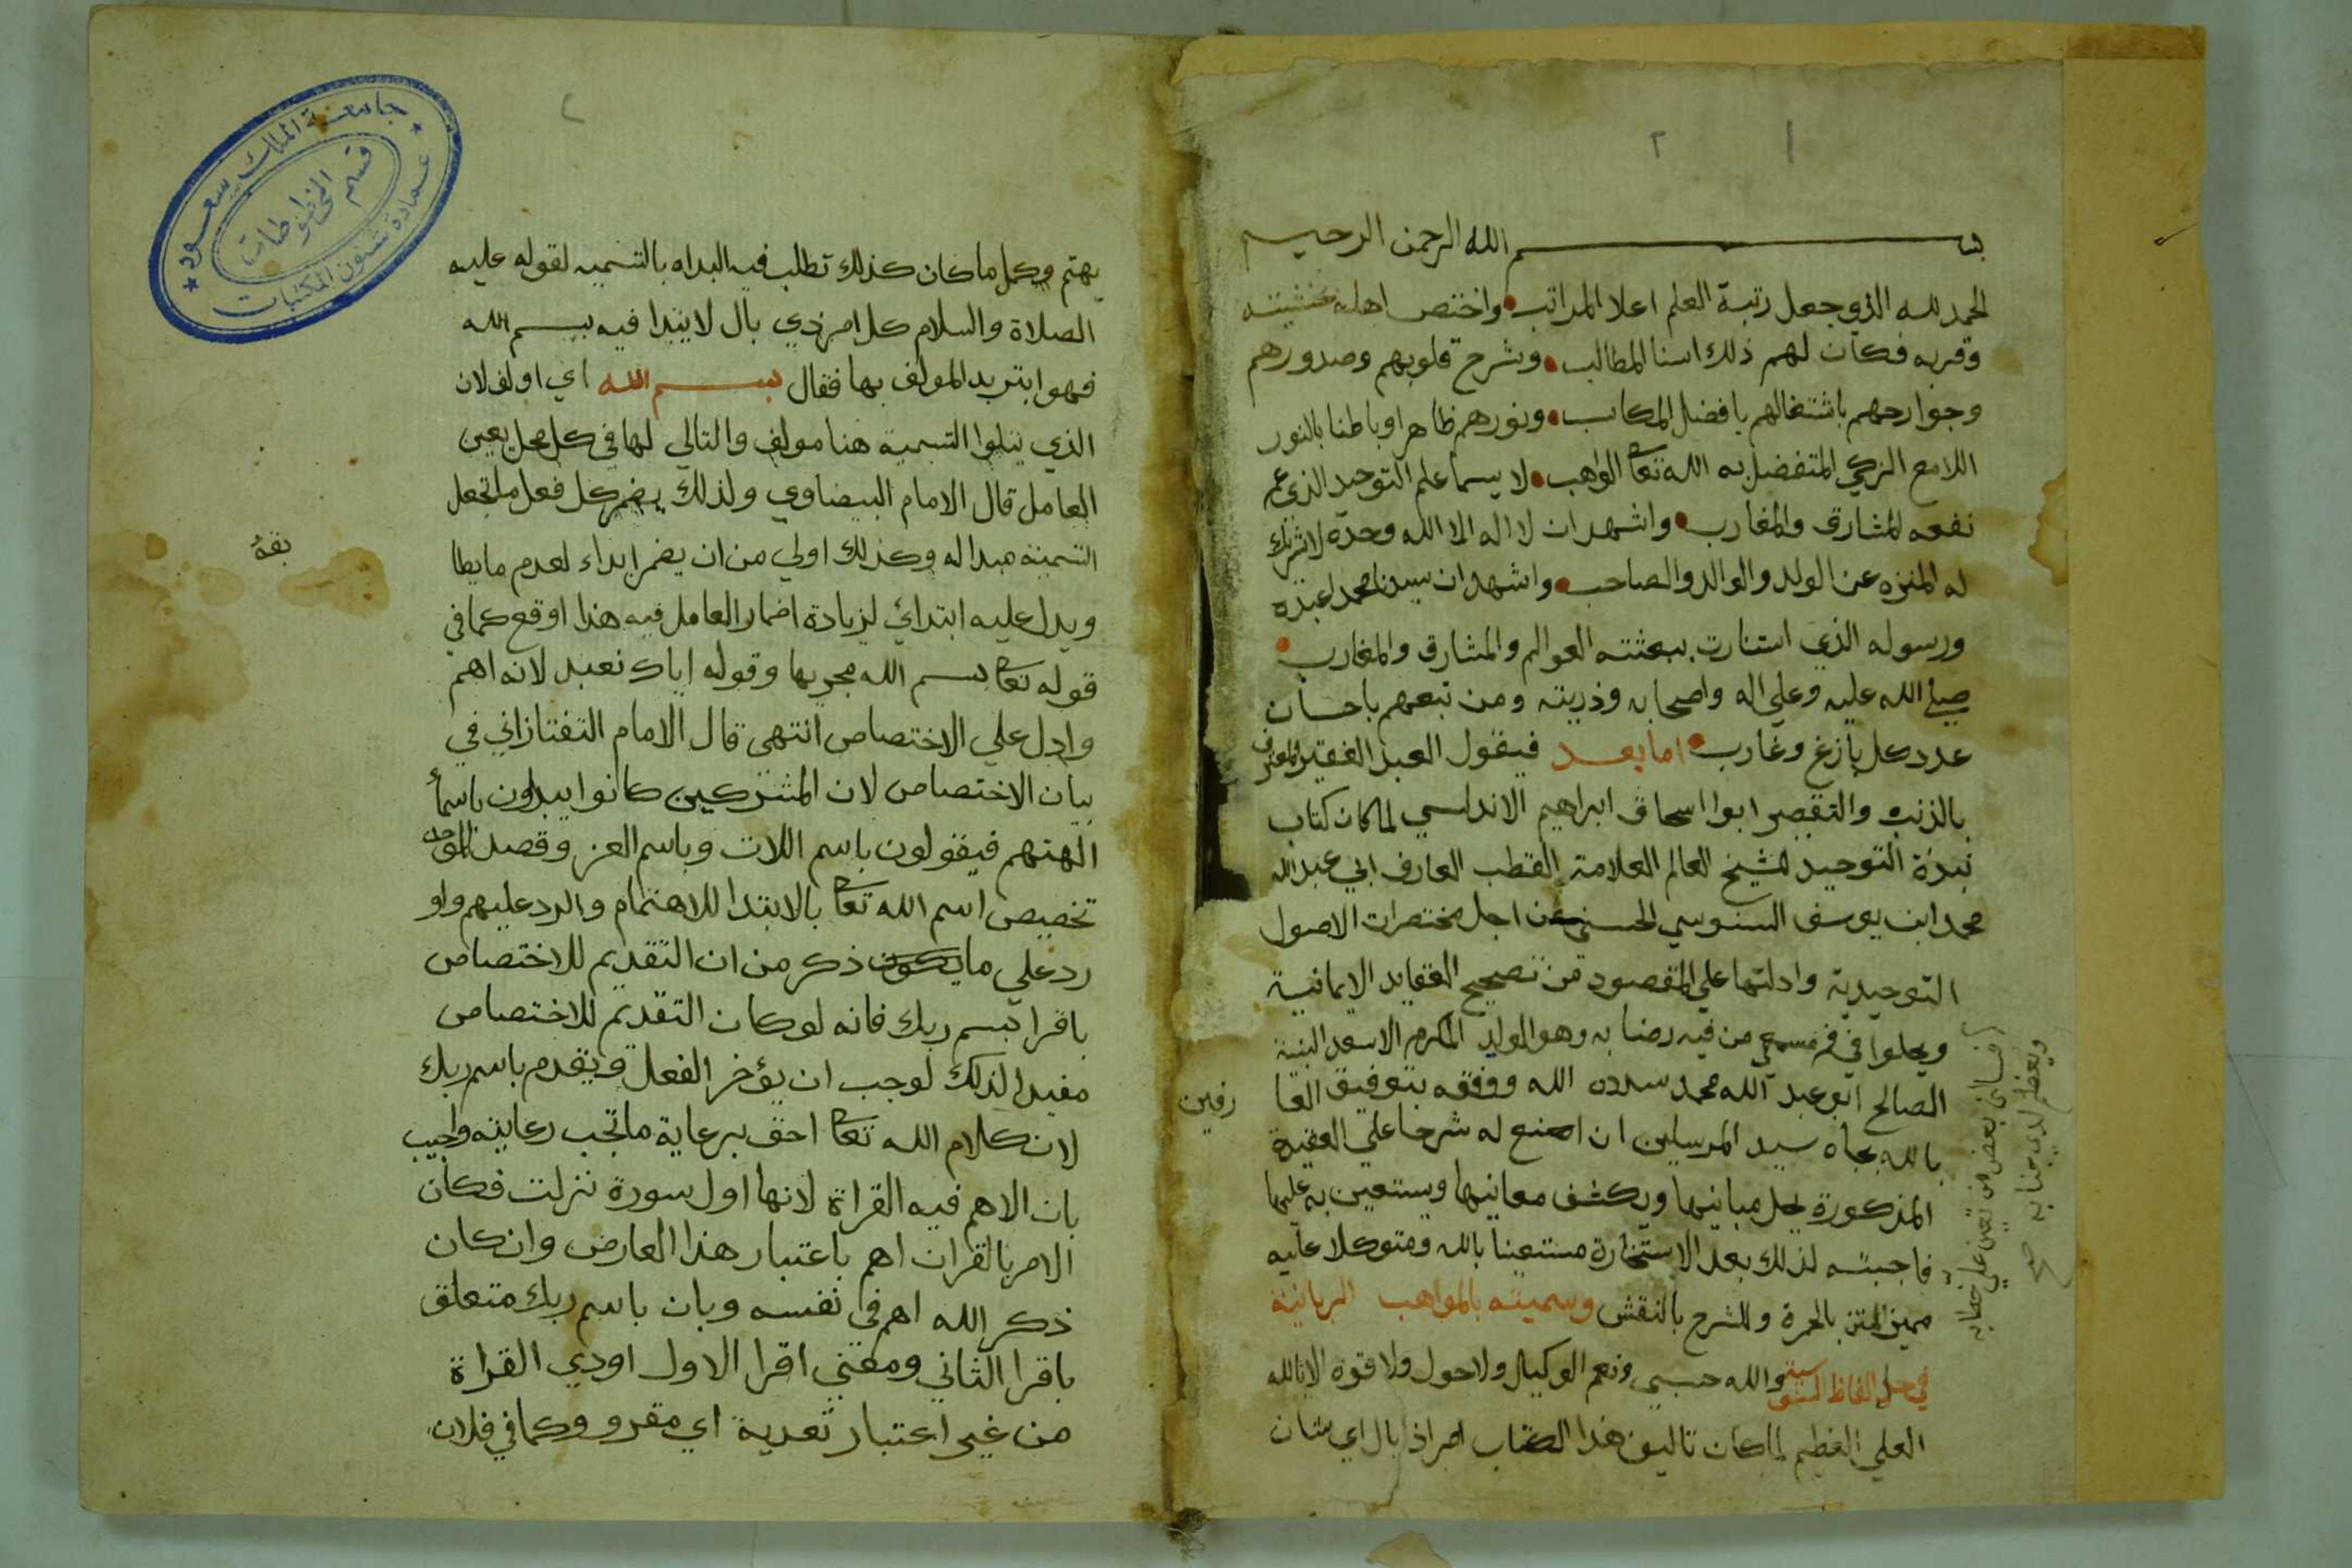 بسم الله الرحمن الرحيم
الحمد لله الذي جعل رتبة العلم اعلا المراتب واختص اهله بخشيته
وقربه فكان لهم ذلك اسنا المطالب وشرح قلوبهم وصدورهم
وجوارحهم باشتغالهم بافضل المكاسب ونورهم ظاهرا وباطنا بالنور
اللامع الزكي المتفضل به الله تعا الواهب لا سيما علم التوحيد الذي عم
نفعه المشارق والمغارب واشهد ان لا اله الا الله وحده لا شريك
له المنزه عن الولد والوالد والصاحب واشهد ان سيدنا محمد اعبده
ورسوله الذي استنارت ببعثته العوالم والمشارق والمغارب
صلى الله عليه وعلي اله واصحابه وذريته ومن تبعهم باحسان
عدد كل بازغ وغارب اما بعد فيقول العبد الفقير المعترف
بالذنب والتقصير ابوا اسحاق ابراهيم الاندلسي لما كان كتاب
نبذة التوحيد للشيخ العالم العلامة القطب العارف ابي عبد الله
محمد ابن يوسف السنوسي الحسني من اجل مختصرات الاصول
التوحيدية وادلتها علي المقصود من تصحيح العقايد الايمانية
ويحلوا في فم من فيه رضا به وهو الولد المكرم الاسعد البنية
الصالح ابو عبد الله محمد سدده الله ووفقه بتوفيق العا
رفين
بالله بجاه سيد المرسلين ان اصنع له شرحا علي العقيدة
المذكورة يحل مبانيها ويكشف معانيها ويستعين به عليها
فاجبته لذلك بعد الاستخارة مستعينا بالله ومتوكلا عليه
مميز المتن بالحمرة والشرح بالنقش وسميته بالمواهب الربانية
في حل الفاظ السنوسية والله حسبي ونعم الوكيل ولا حول ولا قوة الا بالله
العلي العظيم لما كان تاليف هذا الكتاب امرا ذا بال اي شان
فسالني بعض من تعين علي خطابه
ويعظم لدي جنابه صح
يهتم وكل ما كان كذلك تطلب فيه البداه بالتسميه لقوله عليه
الصلاة والسلام كل امر ذي بال لا يبتدا فيه ببسم الله
فهو ابتر بدا المولف بها فقال بسم الله اي اولف لان
الذي يتلوا التسمية هنا مولف والتالي لها في كل محل يعين
العامل قال الامام البيضاوي ولذلك يضمر كل فعل ما تجعل
التسمية مبدا له وكذلك اولي من ان يضمر ابداء لعدم ما يطا
بقه
ويدل عليه ابتدائي لزيادة اضمار العامل فيه هذا اوقع كما في
قوله تعا بسم الله مجريها وقوله اياك نعبد لانه اهم
وادل علي الاختصاص انتهى قال الامام التفتازاني في
بيان الاختصاص لان المشركين كانوا يبداون باسمأ
الهتهم فيقولون باسم اللات وباسم العز وقصد الموحد
تخصيص اسم الله تعا بالابتدا للاهتمام والرد عليهم واو
رد علي ما ذكر من ان التقديم للاختصاص
باقرا بسم ربك فانه لو كان التقديم للاختصاص
مفيدا لذلك لوجب ان يؤخر الفعل ويقدم باسم ربك
لان كلام الله تعا احق برعاية ما تجب رعايته واجيب
بان الاهم فيه القراة لانها اول سورة نزلت فكان
الامر بالقران اهم باعتبار هذا العارض وان كان
ذكر الله اهم في نفسه وبان باسم ربك متعلق
باقرا الثاني ومعني اقرا الاول اودي القراة
من غير اعتبار تعدية اي مقرو وكما في فلان
جامعة الملك سعود
قسم المخطوطات
عمادة شئون المكتبات